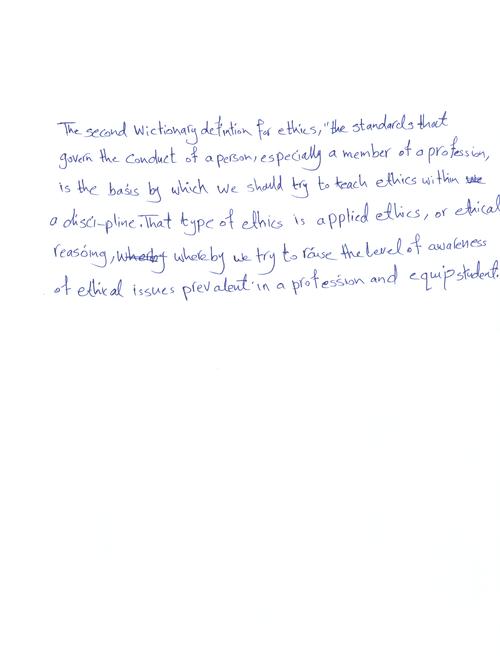 The second Wictionary defintion for ethics, "the standards that
govern the conduct of a person, especially a member of a profession,
is the basis by which we should try to teach ethics within
a disci-pline. That type of ethics is applied ethics, or ethical
reasoing, whereby we try to raise the level of awakeness
of ethical issues prevalent in a profession and equip student.